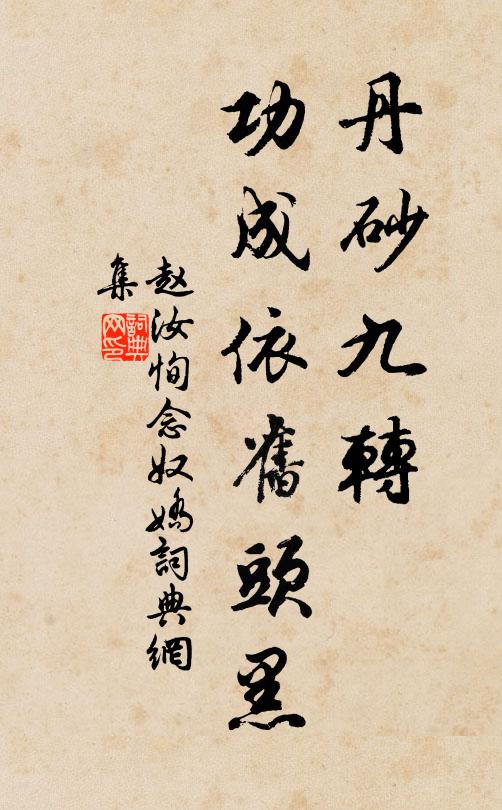 丹砂九轉
功成依舊頭黑
赵汝恂念奴嬌詞典網
集
詞典
网印